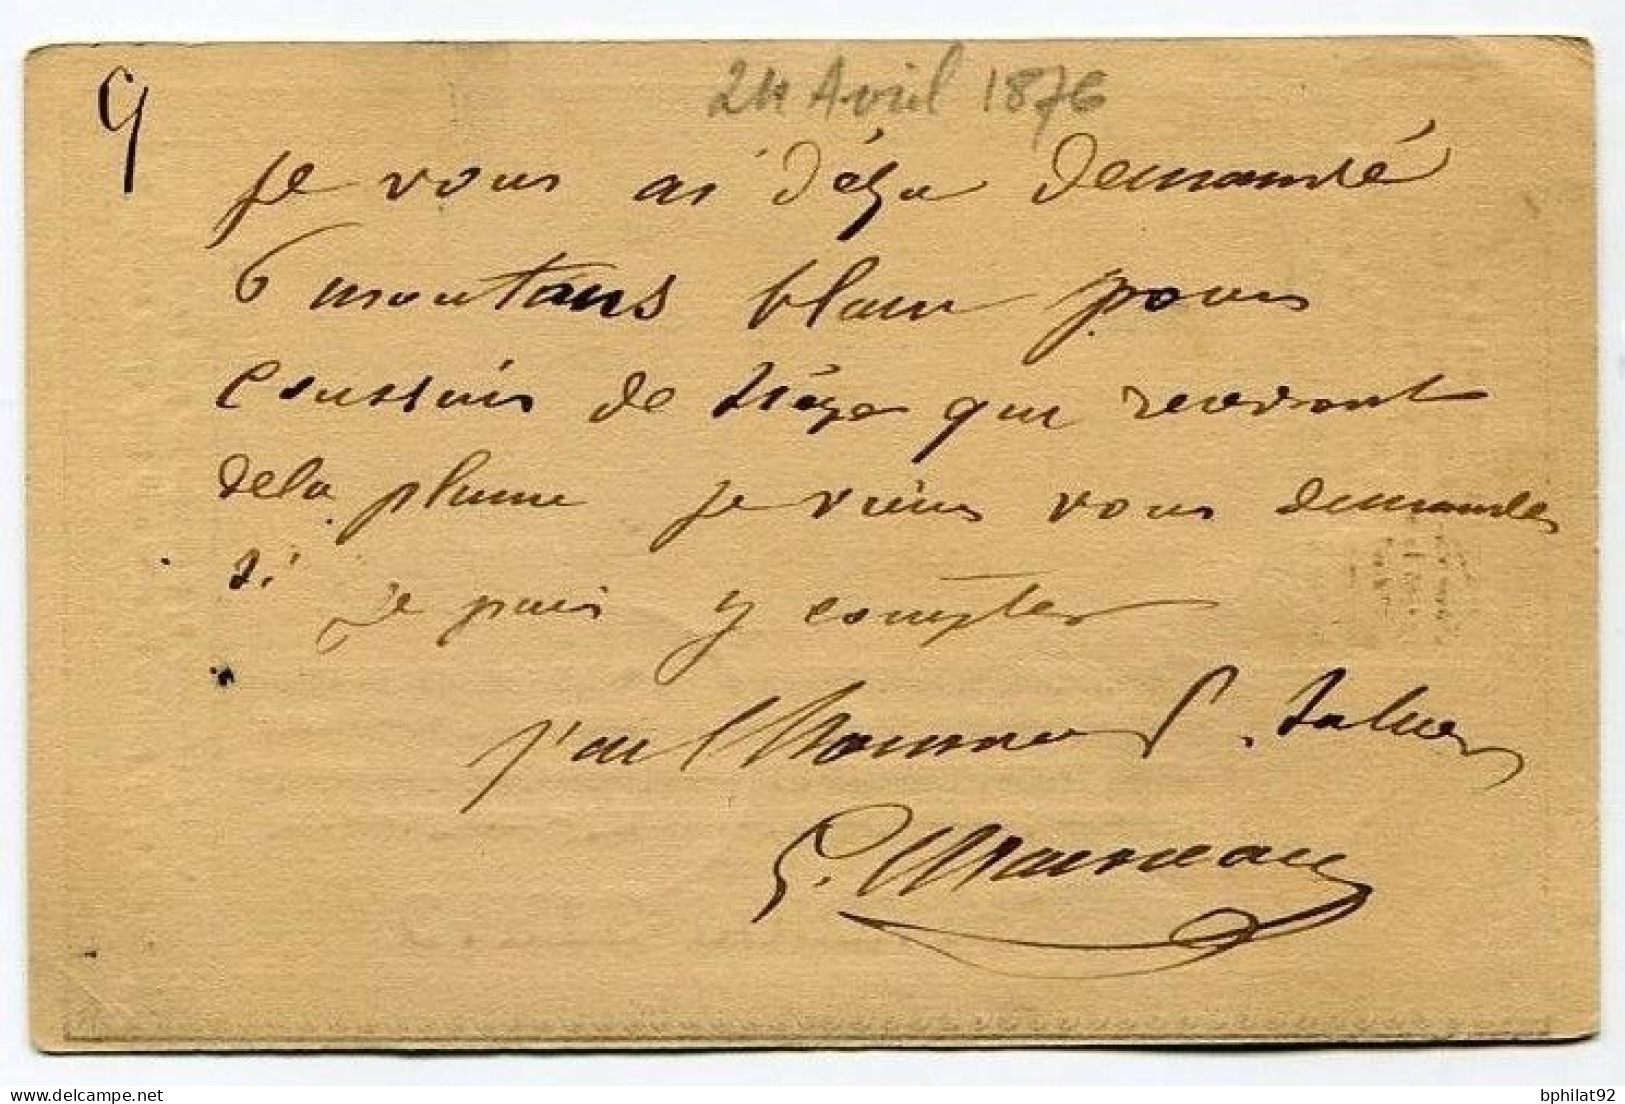 24 Avril 1876
je vous ai déja demandé
6 moutons blanc pour
coussins de siége qui recevront
de la plume je viens vous demander
si je puis y compter
j'ai l'honneur de saluer
bphilat92